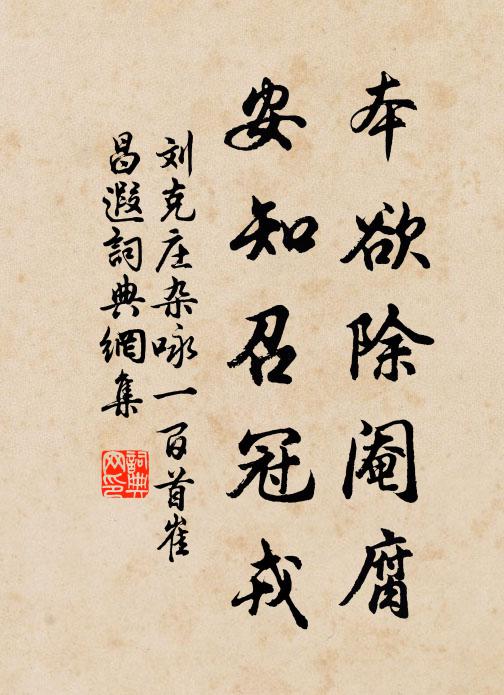 本欲除阉腐
安知召冠戎
刘克庄杂咏一百首崔
昌遐詞典網集
詞典网印